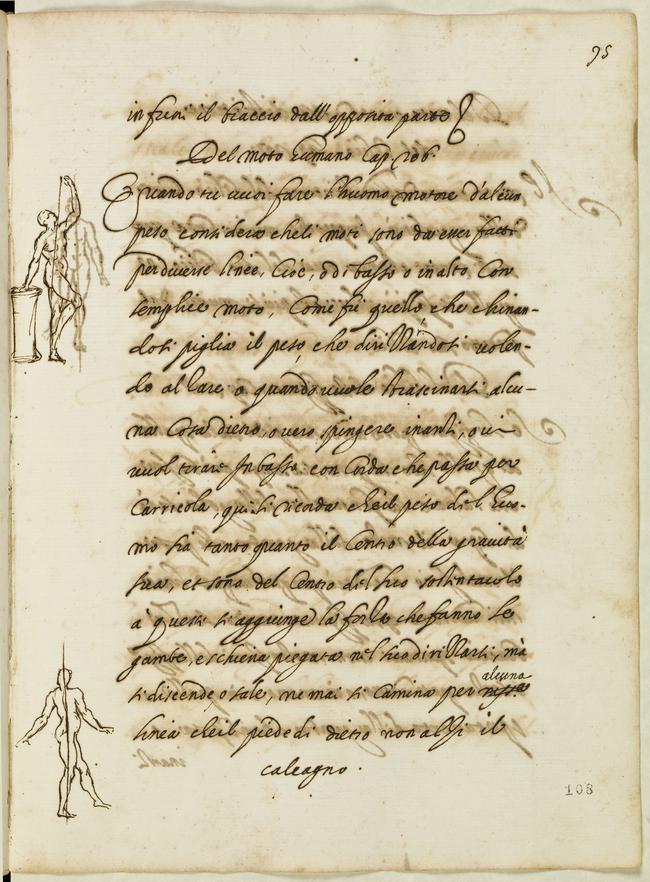 95
in fuori il braccio dall'opposita parte
Del moto humano Cap. 206.
Quando tu vuoi fare l'huomo motore d'alcun
peso considera che li moti sono da esser fatti
per diverse linee, Cioè, o di basso o in alto Con
semplice moto, Come fà quello che chinan-
dosi piglia il peso, che dirizzandosi volen-
do alzare o quando vuole strascinarsi alcu-
na Cosa dietro, overo spingere inanti, o
vuol tirare In basso con Corda che passa per
Carricola, qui si ricorda che il peso del'huo-
mo sia tanto quanto il Centro della gravità
sua, et sono del Centro del suo sostentacolo
à questi si aggiunge la forza che fanno le
gambe, e schena piegata nel suo dirizzarsi, mà
alcuna
si discende, o sale, ne mai si Camina per
linea che il piede di dietro non alzi il
calcagno.
108